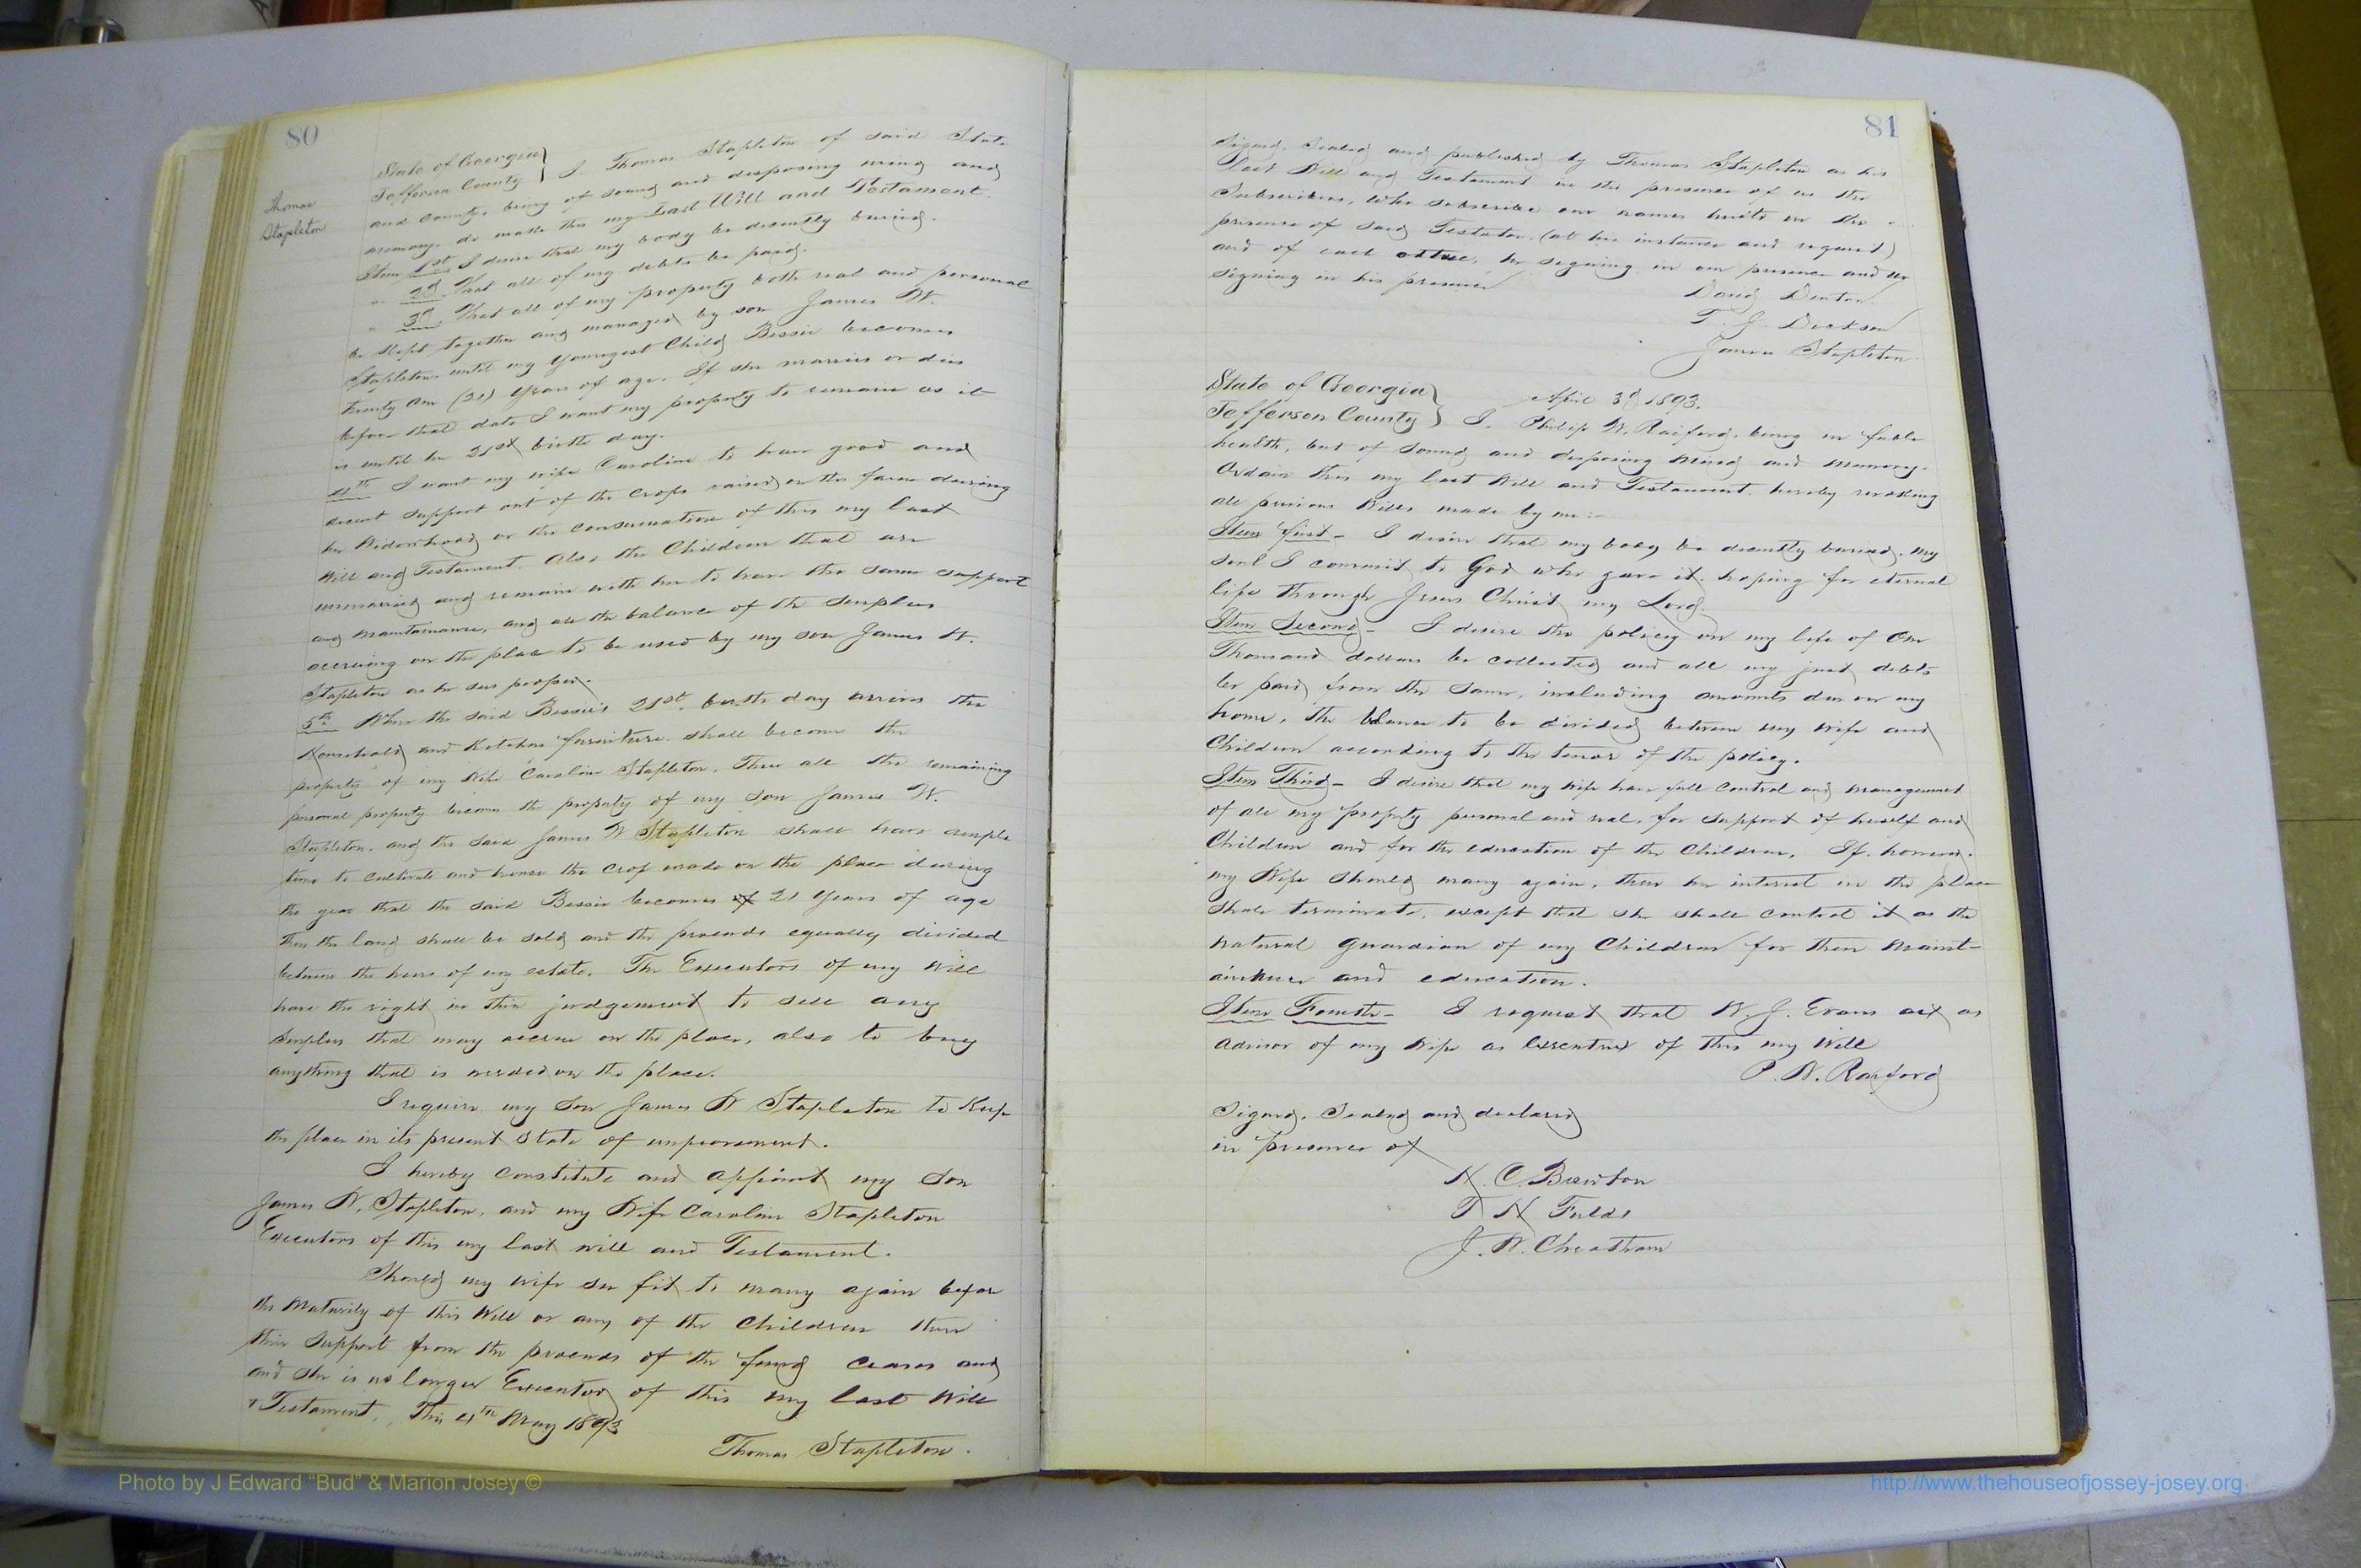 80
Thomas
Stapleton
State of Georgia
Jefferson County } I, Thomas Stapleton of said State
and County, being of sound and disposing mind and
memory, do make this my Last Will and Testament.
Item 1st I desire that my body be decently buried.
" 2d. That all of my debts be paid.
" 3d. That all of my property both real and personal
be kept together and managed by son James W.
Stapleton until my youngest Child Bessie becomes
twenty one (21) years of age. If she marries or dies
before that date I want my property to remain as it
is until her 21st birth day.
4th I want my wife Caroline to have good and
decent support out of the crops raised on the farm during
her Widowhood or the consumation of this my last
Will and Testament. Also the Children that are
unmarried and remain with her to have the same support
and maintainance, and all the balance of the surplus
accruing on the place to be used by my son James W.
Stapleton as he sees proper.
5th When the said Bessie's 21st birth day arrives the
Household and Kitchen furniture shall become the
property of my Wife Caroline Stapleton. Then all the remaining
personal property become the property of my son James W.
Stapleton, and the said James W Stapleton shall have ample
time to cultivate and house the crop made on the place during
the year that the said Bessie becomes of 21 years of age
then the land shall be sold and the proceeds equally divided
between the heirs of my estate. The Executors of my Will
have the right in their judgement to sell any
surplus that may accrue on the place, also to buy
anything that is needed on the place.
I require my son James W Stapleton to Keep
the place in its present State of improvement.
I hereby constitute and appoint my son
James W. Stapleton, and my Wife Caroline Stapleton
Executors of this my last will and Testament.
Should my wife see fit to marry again before
the maturity of this Will or any of the Children then
their support from the proceeds of the ceases and
and she is no longer Executor of this my last Will
& Testament. This 4th May 1893
Thomas Stapleton.
81
Signed, Sealed and published by Thomas Stapleton as his
Last Will and Testament in the presence of us the
Subscribers, who subscribe our names hereto in the
presence of said Testator, (at his instance and request)
and of each other, he signing in our presence and we
signing in his presence
David Denton.
T. J. Dickson
James Stapleton.
State of Georgia } April 3d 1893.
Jefferson County } I, Philip W. Raiford, being in feeble
health, but of sound and disposing mind and memory.
Ordain this my last Will and Testament, hereby revoking
all previous Wills made by me:-
Item first - I desire that my body be decently buried, my
soul I commit to God who gave it, hoping for eternal
life through Jesus Christ my Lord.
Item Second - I desire the policy on my life of One
Thousand dollars be collected and all my just debts
be paid from the same, including amounts due on my
home, the balance to be divided between my wife and
Children according to the tenor of the policy.
Item Third - I desire that my Wife have full control and management
of all my property personal and real, for support of herself and
Children and for the education of the Children. If, however,
my Wife should marry again, then her interest in the place
shall terminate, except that she shall control it as the
natural guardian of my Children for their maint-
ainance and education.
Item Fourth - I request that W. J. Evans act as
advisor of my Wife as Executrix of this my Will
P. W. Raiford
Signed, Sealed and declared
in presence of
C. Brewton
J. W. Cheatham
Photo by J Edward “Bud” & Marion Josey ©
http://www.thehouseofjossey-josey.org